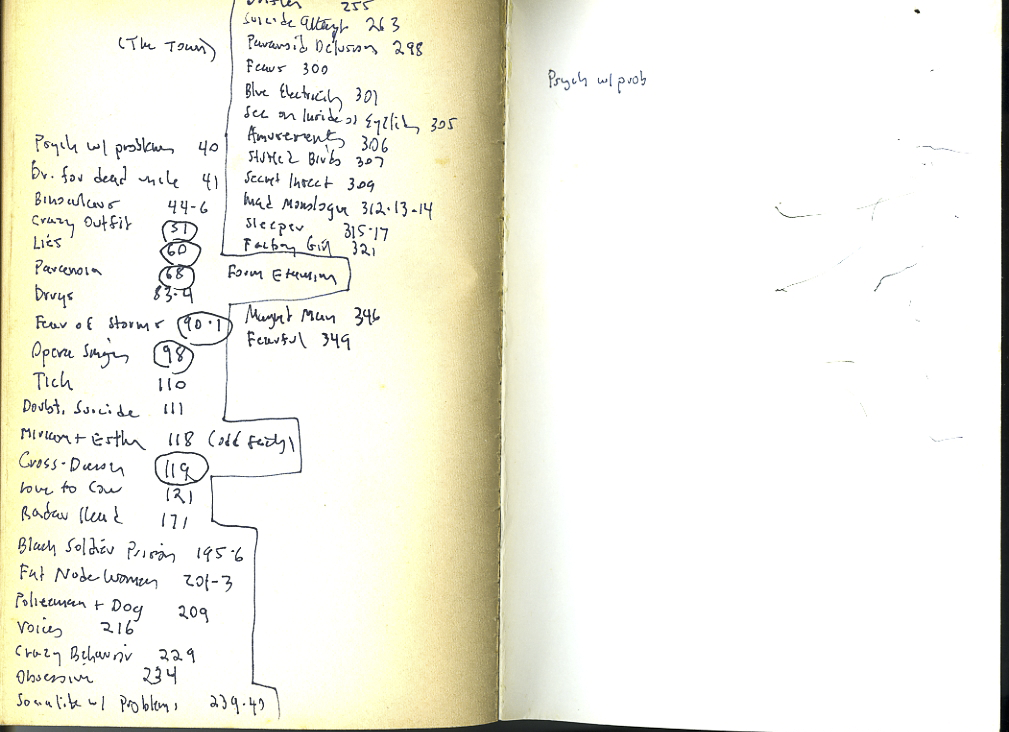 255
Suicide Attempt 263
(The Town)
Paranoid Delusion 298
Fears 300
Blue Electricity 301
See on Inside of Eyelids 305
Amusements 306
Stuffed Birds 307
Secret Insect 309
Mad Monologue 312-13-14
Sleeper 315-17
Factory Girl 321
Form Extension
Magnet Man 346
Fearful 349
Psych w/ problem 40
Dr. for dead uncle 41
Binoculars 44-6
Crazy Outfit 51
Lies 60
Paranoia 68
Drugs 83-4
Fear of Storms 90-1
Opera Singer 98
Tick 110
Doubt, Suicide 111
Miriam + Esther 118 (odd
Cross-Dresser 119
Love to Cow 121
Radar Head 171
Black Soldier Prison 195-6
Fat Nude Woman 201-3
Policeman + Dog 209
Voices 216
Crazy Behavior 229
Obsessive 234
Socialite w/ Problems 239-40
Psych w/ prob